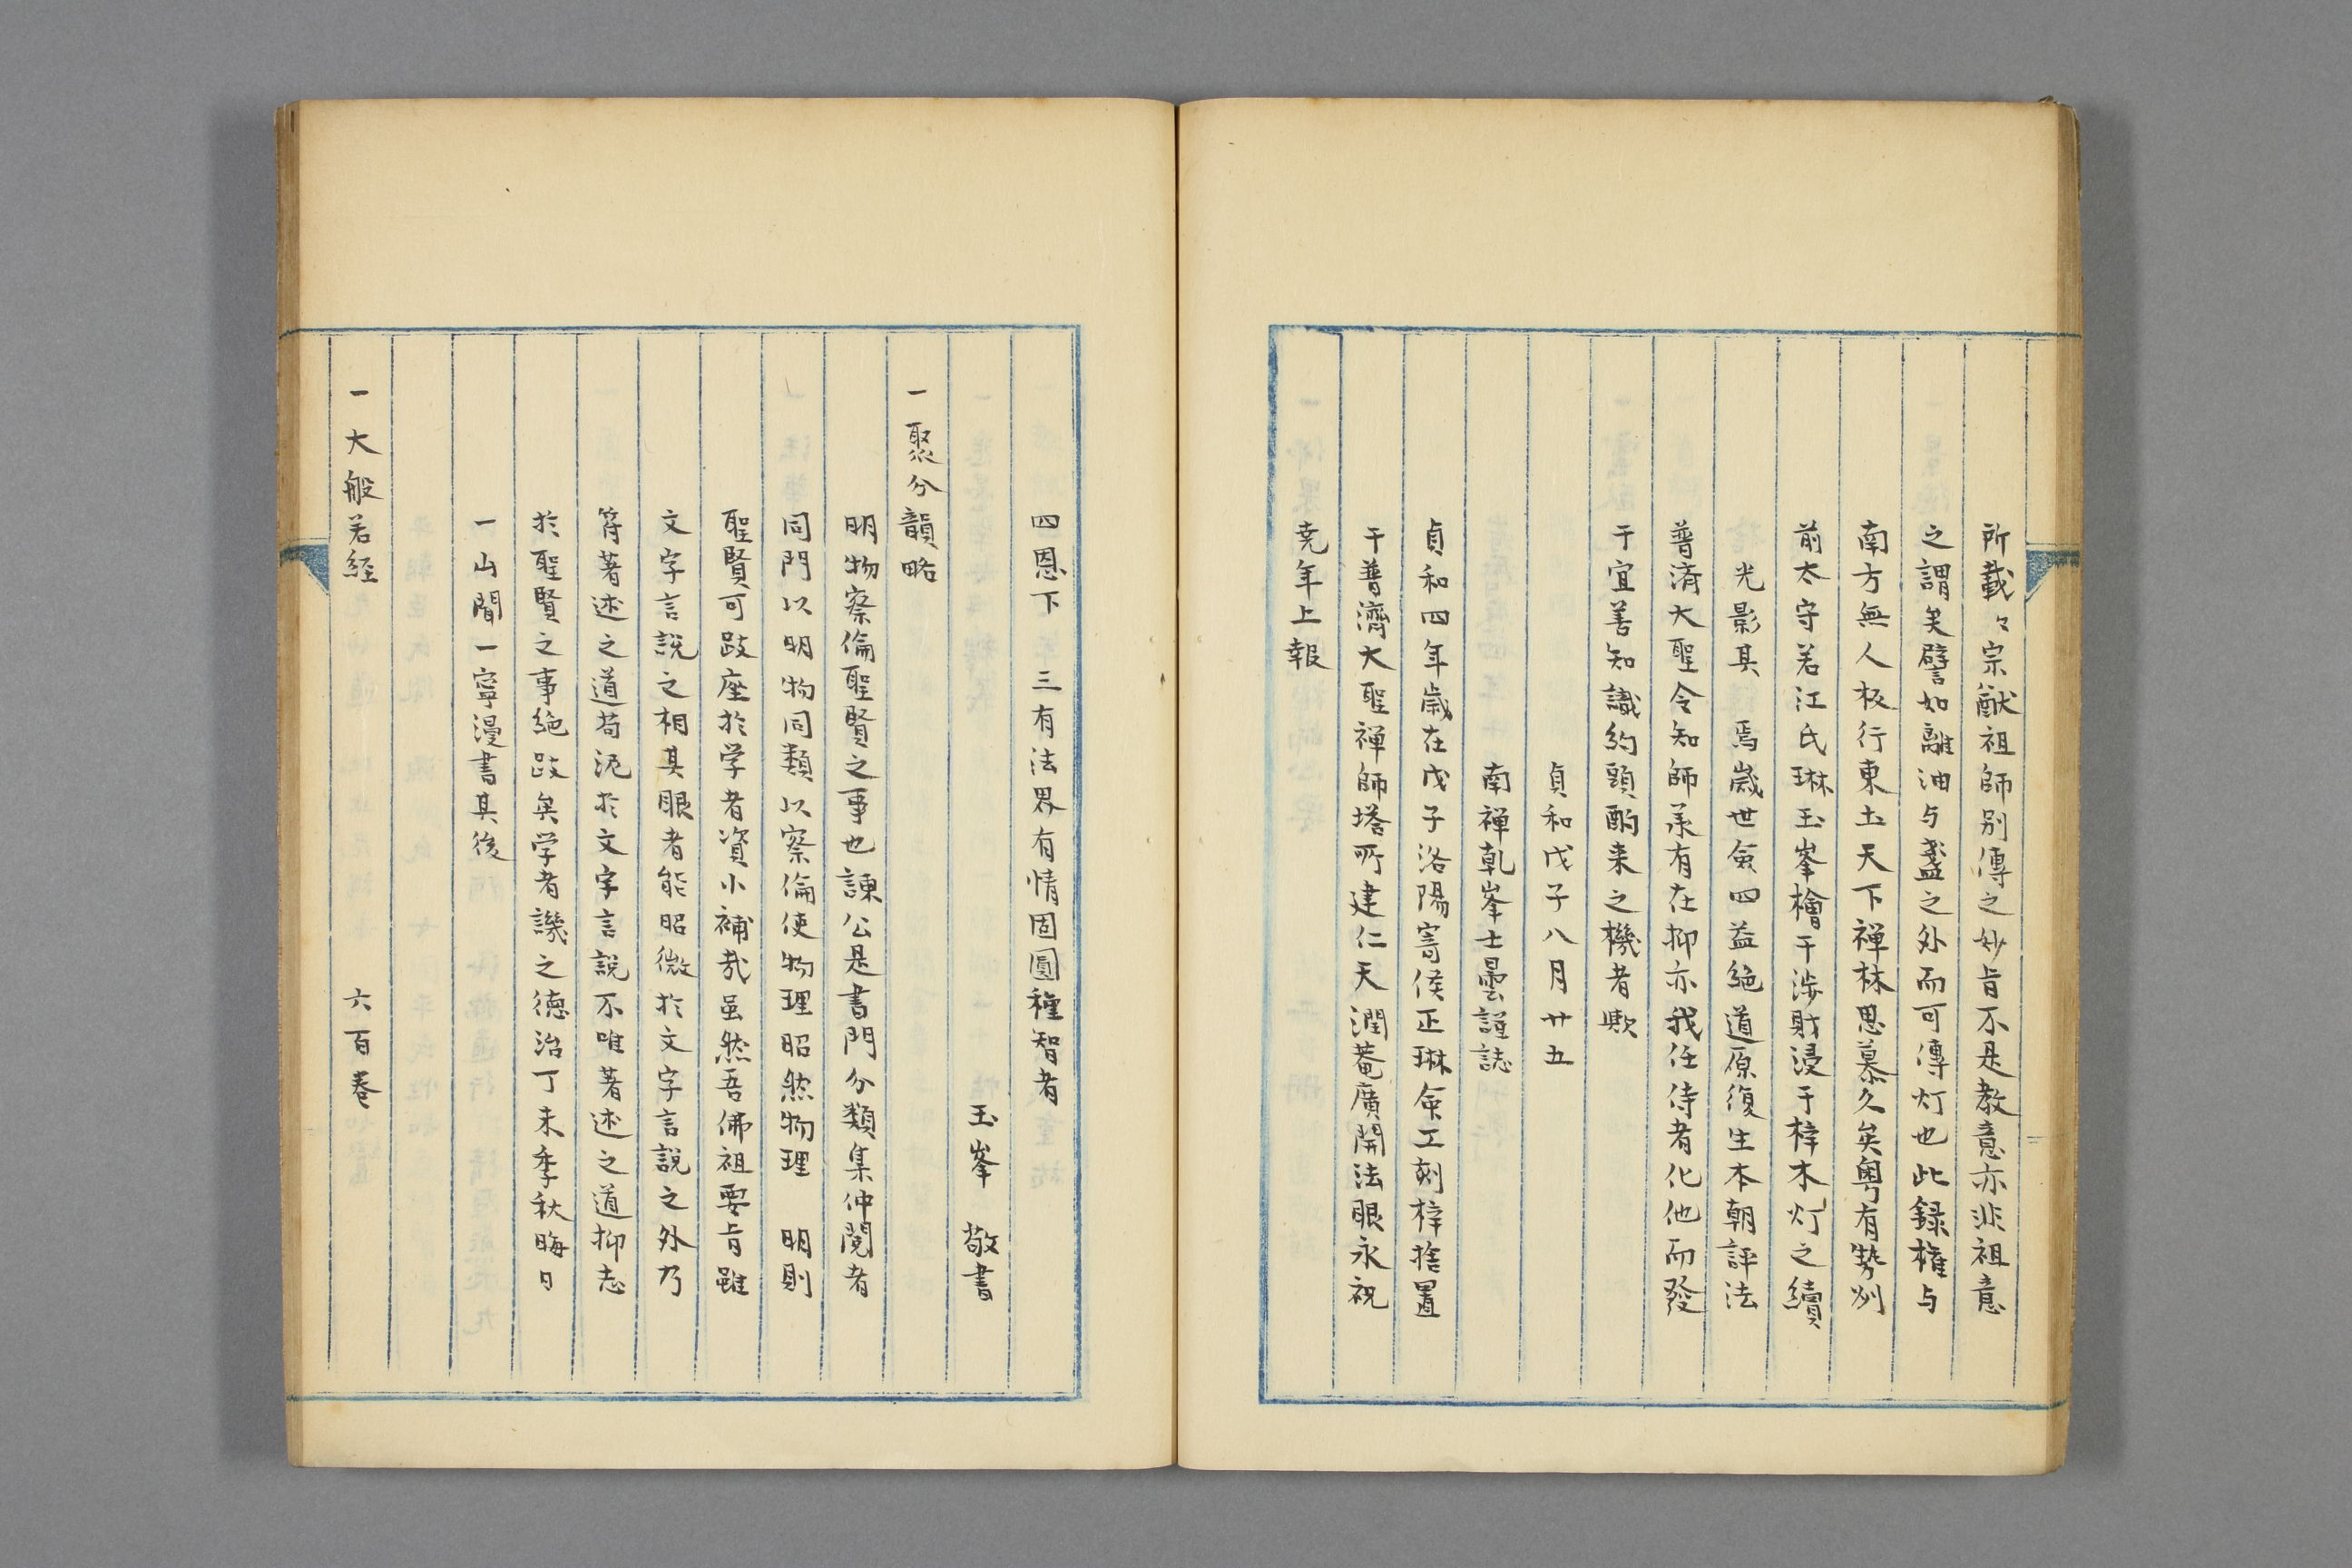 所載々宗猷祖師別傳之妙旨不是教意亦非祖意
之謂矣譬如離油与盞之外而可傳灯也此録権与
南方無人板行東土天下禅林思慕久矣粤有勢州
前太守若江氏琳玉峯檜干渉財浸于梓木灯之續
光影其　焉歳世僉四益絶道原復生本朝評法
普済大聖令知師承有在抑亦我任侍者化他而發
于宜善知識約頭酌来之機者欤
貞和戊子八月廿五
南禅乾峯士曇謹誌
貞和四年歳在戊子洛陽寄侯正琳命工刻梓捨置
干普濟大聖禅師塔所建仁天潤菴廣開法眼永祝
尭年上報
四恩下　三有法界有情固圓種智者
玉峯　敬書
一聚分韻略
明物察倫聖賢之事也諫公是書門分類集仲閲者
同門以明物同類以察倫使物理昭然物理　明則
聖賢可跂座於学者資小補哉虽然吾佛祖要旨雖
文字言説之相其眼者能昭微於文字言説之外乃
符著述之道苟泥於文字言説不唯著述之道抑志
於聖賢之事絶跂矣学者譏之徳治丁未季秋晦日
一山閒一寧漫書其後
一大般若経　六百巻